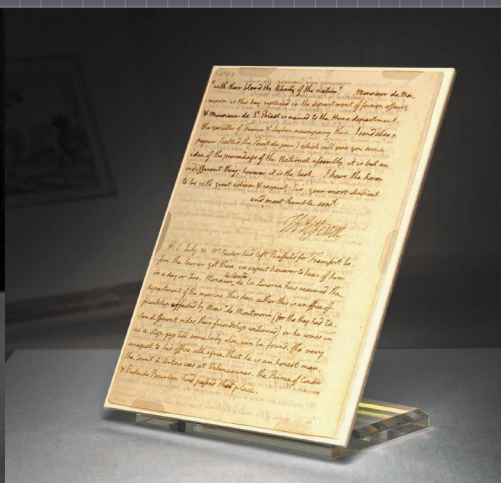 "with their blood the liberty of the nation." Monsieur de Mont-
morin is this day replaced in the department of foreign affairs
& Monsieur de St. Priest is named to the Home department.
the gazettes of France & Leyden accompany this. I send also a
paper (called the Point du jour) which will give you some
idea of the proceedings of the National assembly. it is but an
indifferent thing; however it is the best. I have the honor
to be with great esteem & respect Sir, your most obedient
and most humble servt
Th: Jefferson
P.S. July 21. Mr had left for be-
fore the Courier got there. we expect however to hear of him
in a day or two. Monsieur de la Luzerne has resumed the
department of the marine this day. either this is an office of
friendship effected by Monsr de Montmorin (for tho they had ta-
ken different sides, their friendship continued) or he comes in
as a stop-gap till somebody else can be found. tho' very
unequal to his office, all agree that he is an honest man.
the Count d'Artois was at Valenciennes. the Prince of Condé
& Duke de Bourbon had passed that place.